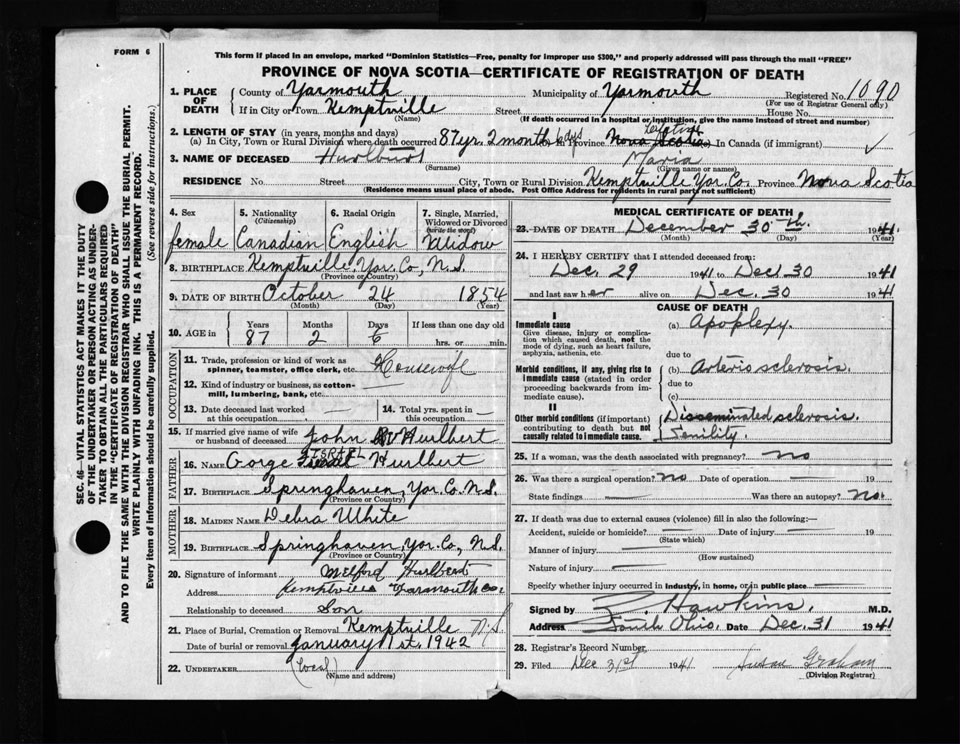 FORM 6
This form if placed in an envelope, marked "Dominion Statistics—Free, penalty for improper use $300," and properly addressed will pass through the mail "FREE"
PROVINCE OF NOVA SCOTIA—CERTIFICATE OF REGISTRATION OF DEATH
1. PLACE OF DEATH County of Yarmouth Municipality of Yarmouth Registered No. 1090
(For use of Registrar General only)
If in City or Town Kemptville Street House No.
(Name) (If death occurred in a hospital or institution, give the name instead of street and number)
2. LENGTH OF STAY (in years, months and days)
(a) In City, Town or Rural Division where death occurred 87 yr. 2 month 6 dys In Province Nova Scotia lifetime In Canada (if immigrant) ✓
3. NAME OF DECEASED Hurlburt Maria
(Surname) (Given name or names)
RESIDENCE No. Street City, Town or Rural Division Kemptville Yar. Co. Province Nova Scotia
(Residence means usual place of abode. Post Office Address for residents in rural parts not sufficient)
4. Sex female
5. Nationality (Citizenship) Canadian
6. Racial Origin English
7. Single, Married, Widowed or Divorced (write the word) Widow
8. BIRTHPLACE Kemptville, Yar. Co, N.S.
(Province or Country)
9. DATE OF BIRTH October 24 1854
(Month) (Day) (Year)
10. AGE in Years 87 Months 2 Days 6 If less than one day old hrs. or min.
OCCUPATION
11. Trade, profession or kind of work as spinner, teamster, office clerk, etc. Housewife
12. Kind of industry or business, as cotton-mill, lumbering, bank, etc. —
13. Date deceased last worked at this occupation —
14. Total yrs. spent in this occupation —
15. If married give name of wife or husband of deceased John Hurlbert
FATHER
16. NAME Gorge ISRAEL Hurlbert
17. BIRTHPLACE Springhaven, Yar. Co. N.S.
(Province or Country)
MOTHER
18. MAIDEN NAME Debra White
19. BIRTHPLACE Springhaven, Yar. Co., N.S.
(Province or Country)
20. Signature of informant Melford Hurlbert
Address Kemptville Yarmouth Co.
Relationship to deceased Son
21. Place of Burial, Cremation or Removal Kemptville N.S.
Date of burial or removal January 1st. 1942
22. UNDERTAKER
(Name and address)
MEDICAL CERTIFICATE OF DEATH
23. DATE OF DEATH December 30th. 1941
(Month) (Day) (Year)
24. I HEREBY CERTIFY that I attended deceased from:
Dec. 29 1941 to Dec. 30 1941
and last saw her alive on Dec. 30 1941
CAUSE OF DEATH
I
Immediate cause
Give disease, injury or complication which caused death, not the mode of dying, such as heart failure, asphyxia, asthenia, etc.
(a) Apoplexy.
due to
Morbid conditions, if any, giving rise to immediate cause (stated in order proceeding backwards from immediate cause).
(b) Arterio sclerosis.
due to
(c)
II
Other morbid conditions (if important) contributing to death but not causally related to immediate cause.
Disseminated sclerosis.
Senility.
25. If a woman, was the death associated with pregnancy? no
26. Was there a surgical operation? no Date of operation — 19
State findings — Was there an autopsy? no.
27. If death was due to external causes (violence) fill in also the following:—
Accident, suicide or homicide? — Date of injury — 19
(State which)
Manner of injury —
(How sustained)
Nature of injury —
Specify whether injury occurred in industry, in home, or in public place —
Signed by Hawkins, M.D.
Address South Ohio, Date Dec. 31 1941
28. Registrar's Record Number
29. Filed Dec 31st 1941 Susan Graham
(Division Registrar)
SEC. 46—VITAL STATISTICS ACT MAKES IT THE DUTY
OF THE UNDERTAKER OR PERSON ACTING AS UNDERTAKER
TO OBTAIN ALL THE PARTICULARS REQUIRED
IN THE "CERTIFICATE OF REGISTRATION OF DEATH"
AND TO FILE THE SAME WITH THE DIVISION REGISTRAR WHO SHALL ISSUE THE BURIAL PERMIT.
WRITE PLAINLY WITH UNFADING INK. THIS IS A PERMANENT RECORD.
Every item of information should be carefully supplied. (See reverse side for instructions.)